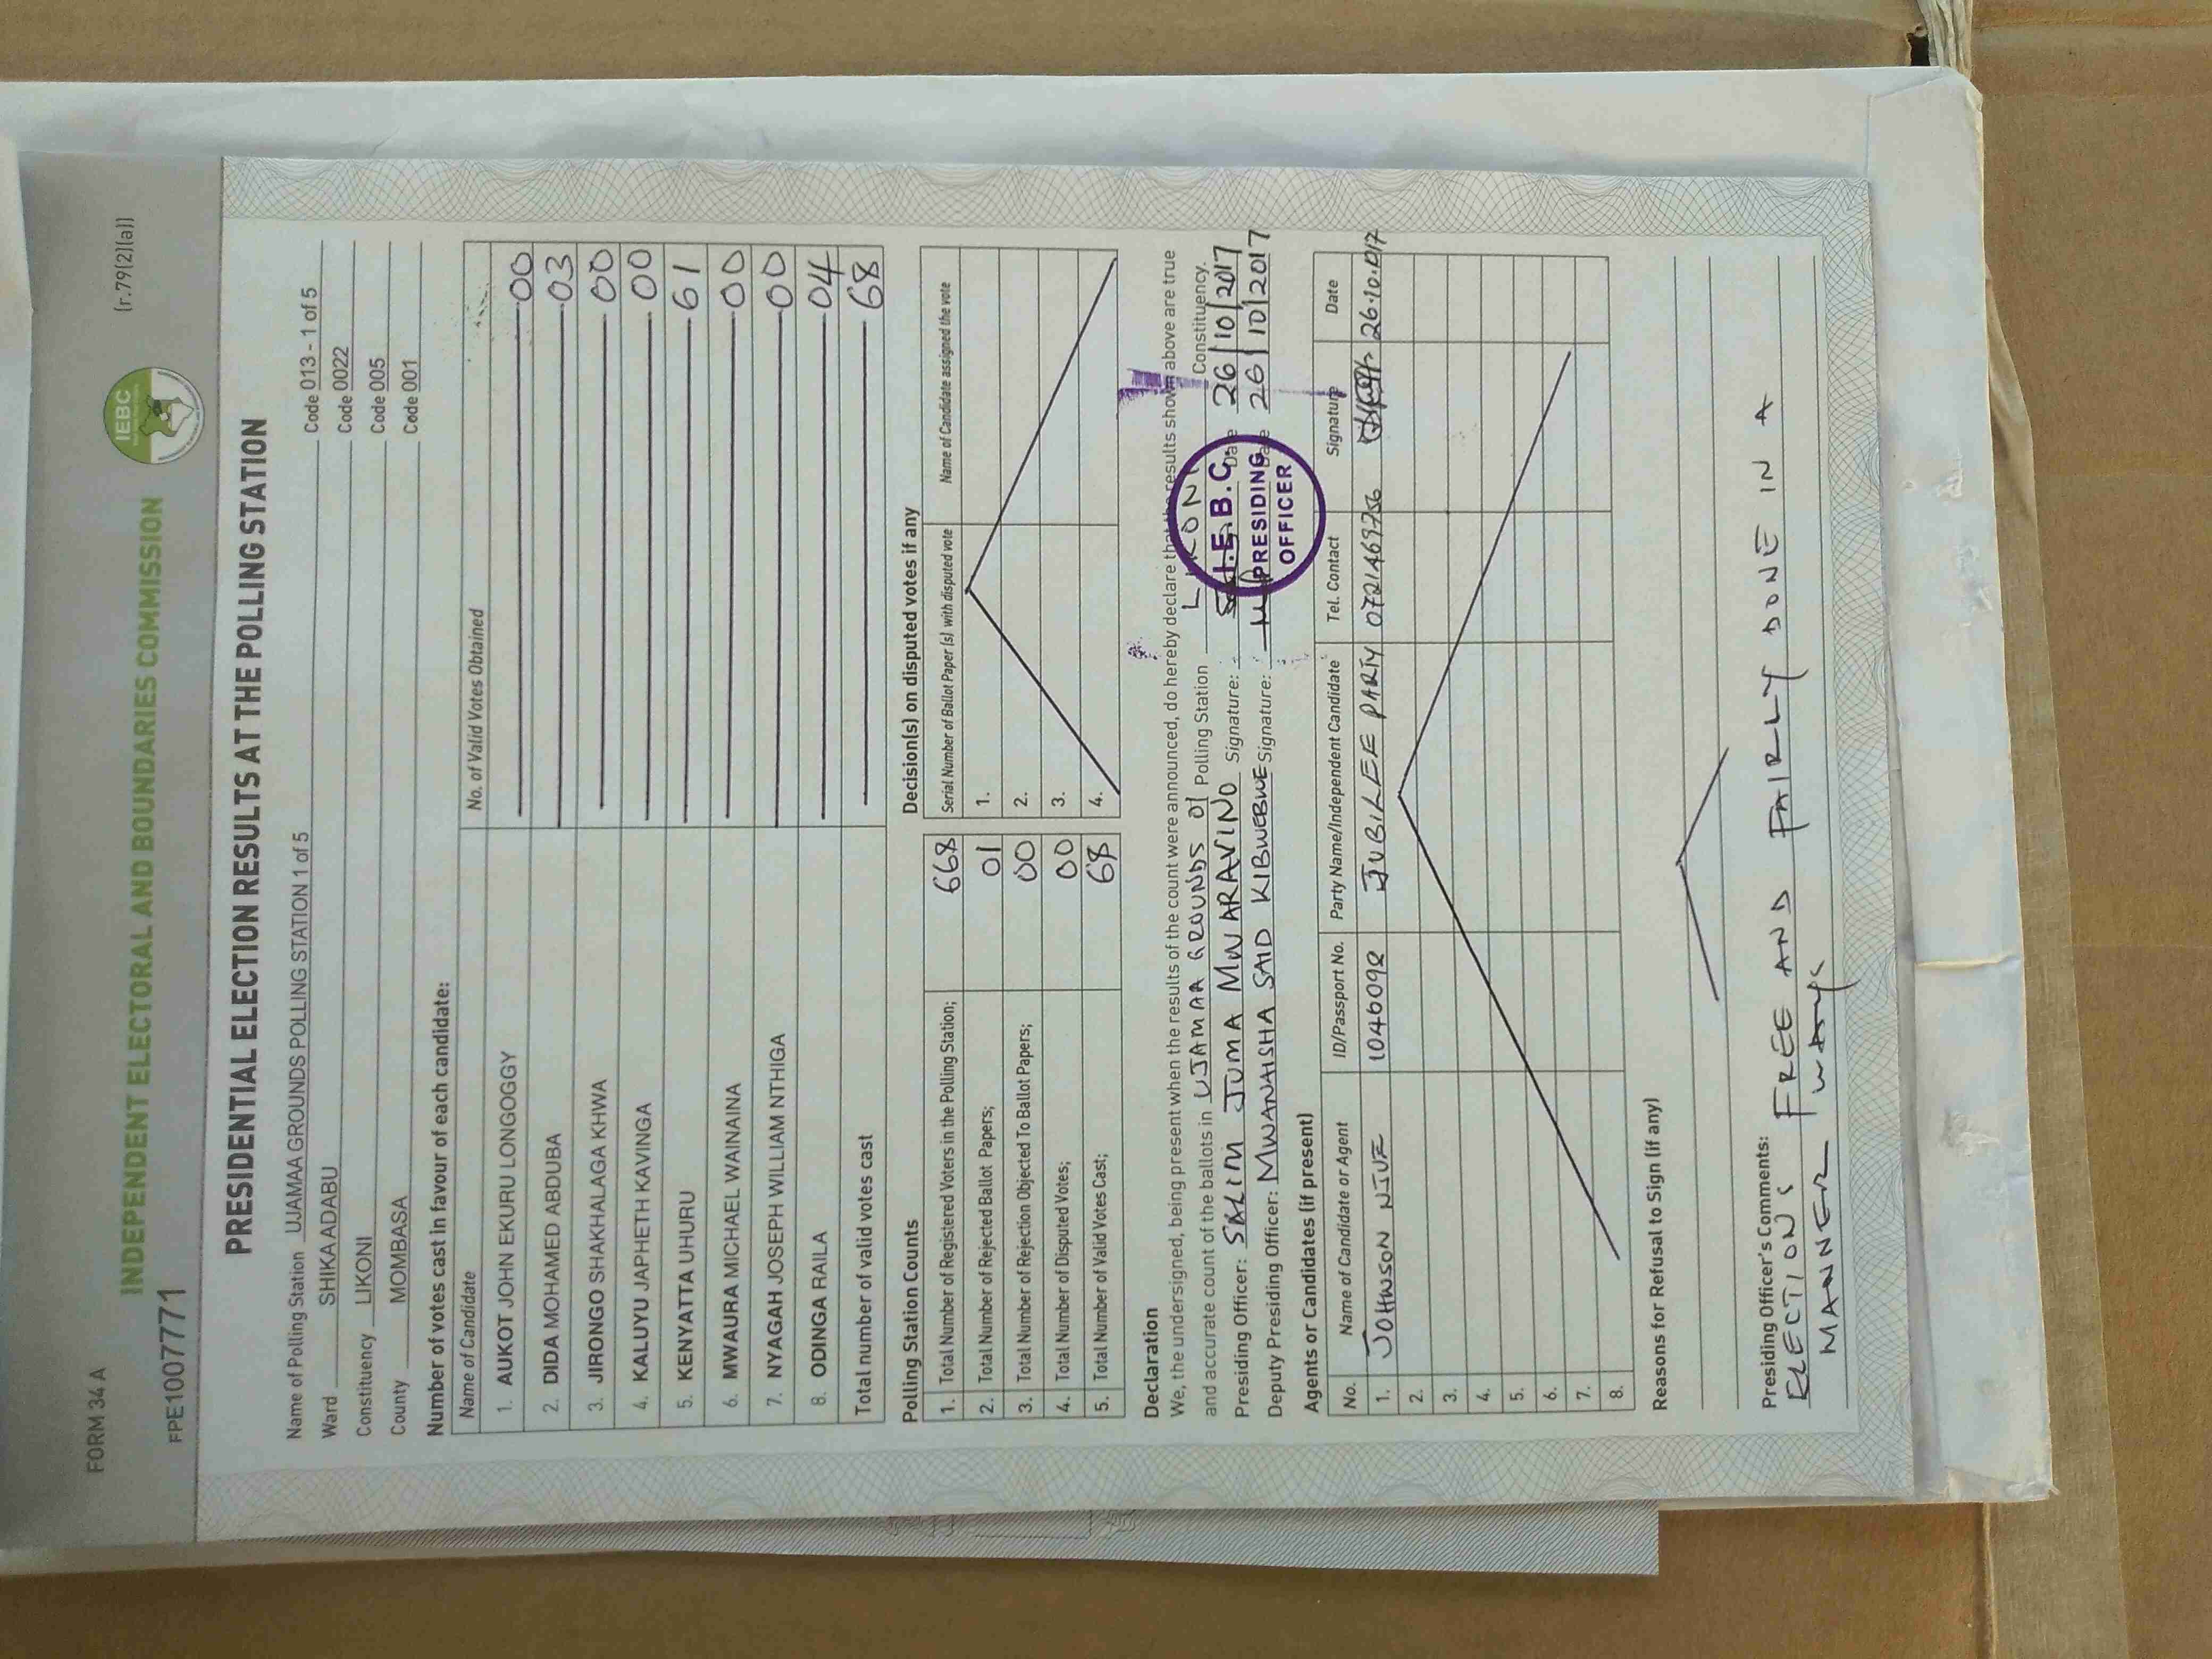 FORM 34 A
(r.79(2)(a))
IEBC
INDEPENDENT ELECTORAL AND BOUNDARIES COMMISSION
FPE1007771
PRESIDENTIAL ELECTION RESULTS AT THE POLLING STATION
Name of Polling Station UJAMAA GROUNDS POLLING STATION 1 of 5 Code 013 - 1 of 5
Ward SHIKA ADABU Code 0022
Constituency LIKONI Code 005
County MOMBASA Code 001
Number of votes cast in favour of each candidate:
Name of Candidate No. of Valid Votes Obtained
1. AUKOT JOHN EKURU LONGOGGY 00
2. DIDA MOHAMED ABDUBA 03
3. JIRONGO SHAKHALAGA KHWA 00
4. KALUYU JAPHETH KAVINGA 00
5. KENYATTA UHURU 61
6. MWAURA MICHAEL WAINAINA 00
7. NYAGAH JOSEPH WILLIAM NTHIGA 00
8. ODINGA RAILA 04
Total number of valid votes cast 68
Polling Station Counts
1. Total Number of Registered Voters in the Polling Station; 668
2. Total Number of Rejected Ballot Papers; 01
3. Total Number of Rejection Objected To Ballot Papers; 00
4. Total Number of Disputed Votes; 00
5. Total Number of Valid Votes Cast; 68
Decision(s) on disputed votes if any
Serial Number of Ballot Paper (s) with disputed vote Name of Candidate assigned the vote
1.
2.
3.
4.
Declaration
We, the undersigned, being present when the results of the count were announced, do hereby declare that the results shown above are true
and accurate count of the ballots in UJAMAA GROUNDS 01 Polling Station LIKONI Constituency.
Presiding Officer: SALIM JUMA MWARAVINO Signature: Date 26/10/2017
Deputy Presiding Officer: MWANAISHA SAID KIBWEBWE Signature: Date 26/10/2017
I.E.B.C.
PRESIDING
OFFICER
Agents or Candidates (if present)
No. Name of Candidate or Agent ID/Passport No. Party Name/Independent Candidate Tel. Contact Signature Date
1. JOHNSON NJUE 10460098 JUBILEE PARTY 0721469756 26.10.2017
2.
3.
4.
5.
6.
7.
8.
Reasons for Refusal to Sign (if any)
Presiding Officer's Comments:
ELECTIONS FREE AND FAIRLY DONE IN A
MANNER